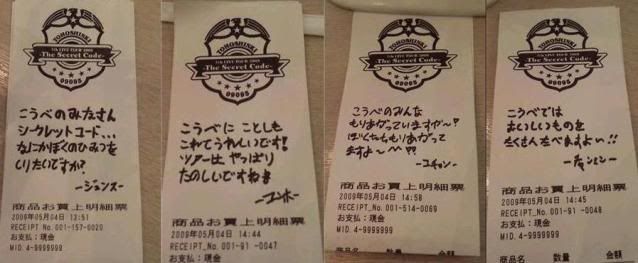 TOHOSHINKI
5th LIVE TOUR 2009
-The Secret Code-
99095
こうべのみなさん
シークレットコード、、、
なにかぼくのひみつを
しりたいですか?
-ジュンス-
商品お買上明細票
2009年05月04日 13:51
RECEIPT No. 001-157-0020
お支払:現金
MID. 4-9999999
TOHOSHINKI
5th LIVE TOUR 2009
-The Secret Code-
99095
こうべに ことしも
これてうれしいです!
ツアーは やっぱり
たのしいですね
-ユンホ-
商品お買上明細票
2009年05月04日 14:44
RECEIPT_No. 001-91 -0047
お支払:現金
MID. 4-9999999
TOHOSHINKI
5th LIVE TOUR 2009
-The Secret Code-
99095
こうべのみんな
もりあがっていますか~?
ぼくたちももりあがって
ますよ~^^
商品お買上明細票
2009年05月04日 14:58
RECEIPT_No. 001-514-0069
お支払:現金
MID. 4-9999999
商品名 数量 金額
TOHOSHINKI
5th LIVE TOUR 2009
-The Secret Code-
99095
こうべでは
おいしいものを
たくさんたべますよぉ!!
商品お買上明細票
2009年05月04日 14:45
RECEIPT_No. 001-91 -0048
お支払:現金
MID. 4-9999999
商品名 数量 金額